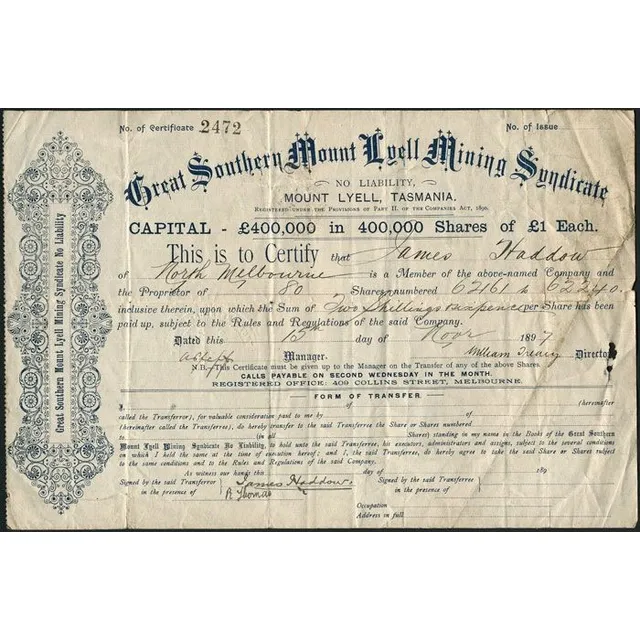 No. of Certificate 2472 No. of Issue
Great Southern Mount Lyell Mining Syndicate
NO LIABILITY,
MOUNT LYELL, TASMANIA.
REGISTERED UNDER THE PROVISIONS OF PART II. OF THE COMPANIES ACT, 1890.
CAPITAL - £400,000 in 400,000 Shares of £1 Each.
This is to Certify that James Haddow
of North Melbourne is a Member of the above-named Company and
the Proprietor of 80 Shares numbered 62161 to 62240.
inclusive therein, upon which the Sum of Two Shillings & sixpence per Share has been
paid up, subject to the Rules and Regulations of the said Company.
Dated this 15th day of Novr 1897
Manager. William Director
N.B.—This Certificate must be given up to the Manager on the Transfer of any of the above Shares.
CALLS PAYABLE ON SECOND WEDNESDAY IN THE MONTH.
REGISTERED OFFICE: 409 COLLINS STREET, MELBOURNE.
FORM OF TRANSFER.
I, of (hereinafter
called the Transferror), for valuable consideration paid to me by of
(hereinafter called the Transferree), do hereby transfer to the said Transferree the Share or Shares numbered
to (in all Shares) standing in my name in the Books of the Great Southern
Mount Lyell Mining Syndicate No Liability, to hold unto the said Transferree, his executors, administrators and assigns, subject to the several conditions
on which I held the same at the time of execution hereof; and I, the said Transferree, do hereby agree to take the said Share or Shares subject
to the same conditions and to the Rules and Regulations of the said Company.
As witness our hands this day of 189
Signed by the said Transferror James Haddow. Signed by the said Transferree
in the presence of R Thomas in the presence of
Occupation
Address in full
Great Southern Mount Lyell Mining Syndicate No Liability